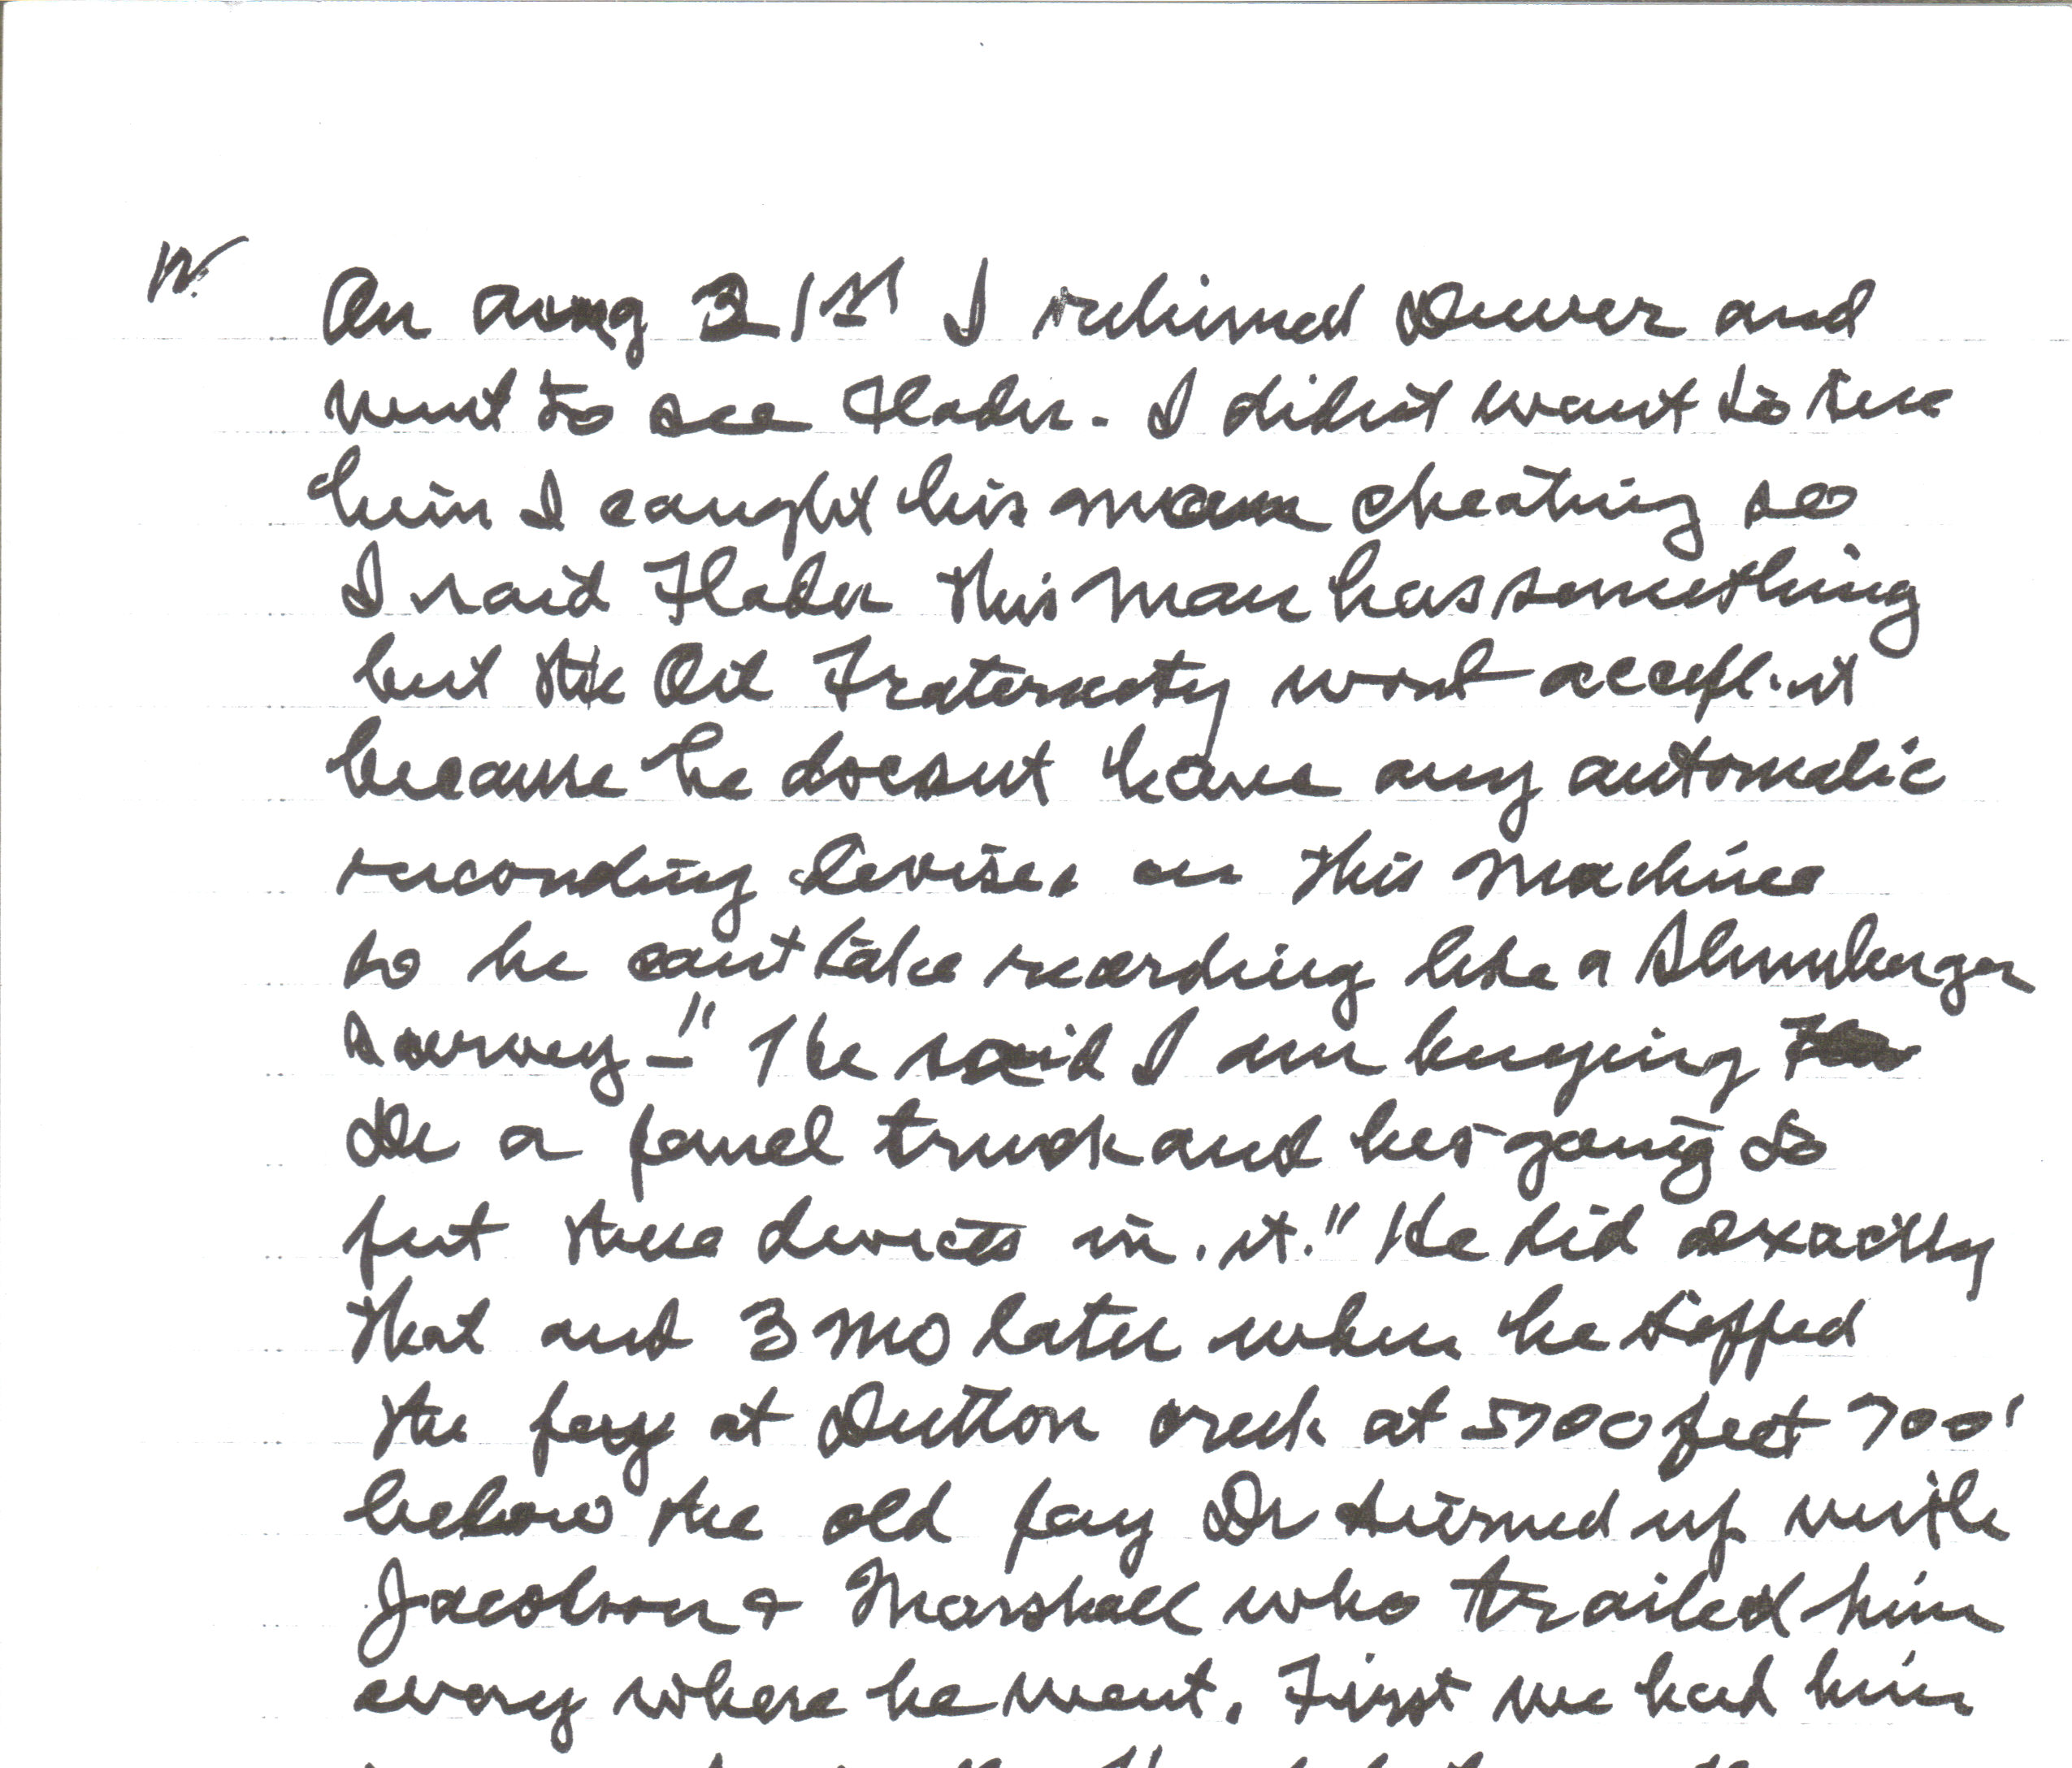 W.
On Aug 21st I returned Denver and
went to see Flader. I didnt want to
him I caught his man cheating so
I said Flader this man has something
but the Oil Fraternity wont accept it
because he doesnt have any automatic
reconding devises on this machine
so he cant take recording like a Slumberger
survey-" He said I am buying
Dr a panel truck and hes going to
put these devices in. it." He did exactly
that and 3 mo later when he topped
the pay at Dutton creek at 5700 feet 700'
below the old pay Dr turned up with
Jacobson & Marshall who trailed him
every where he went. First we had him